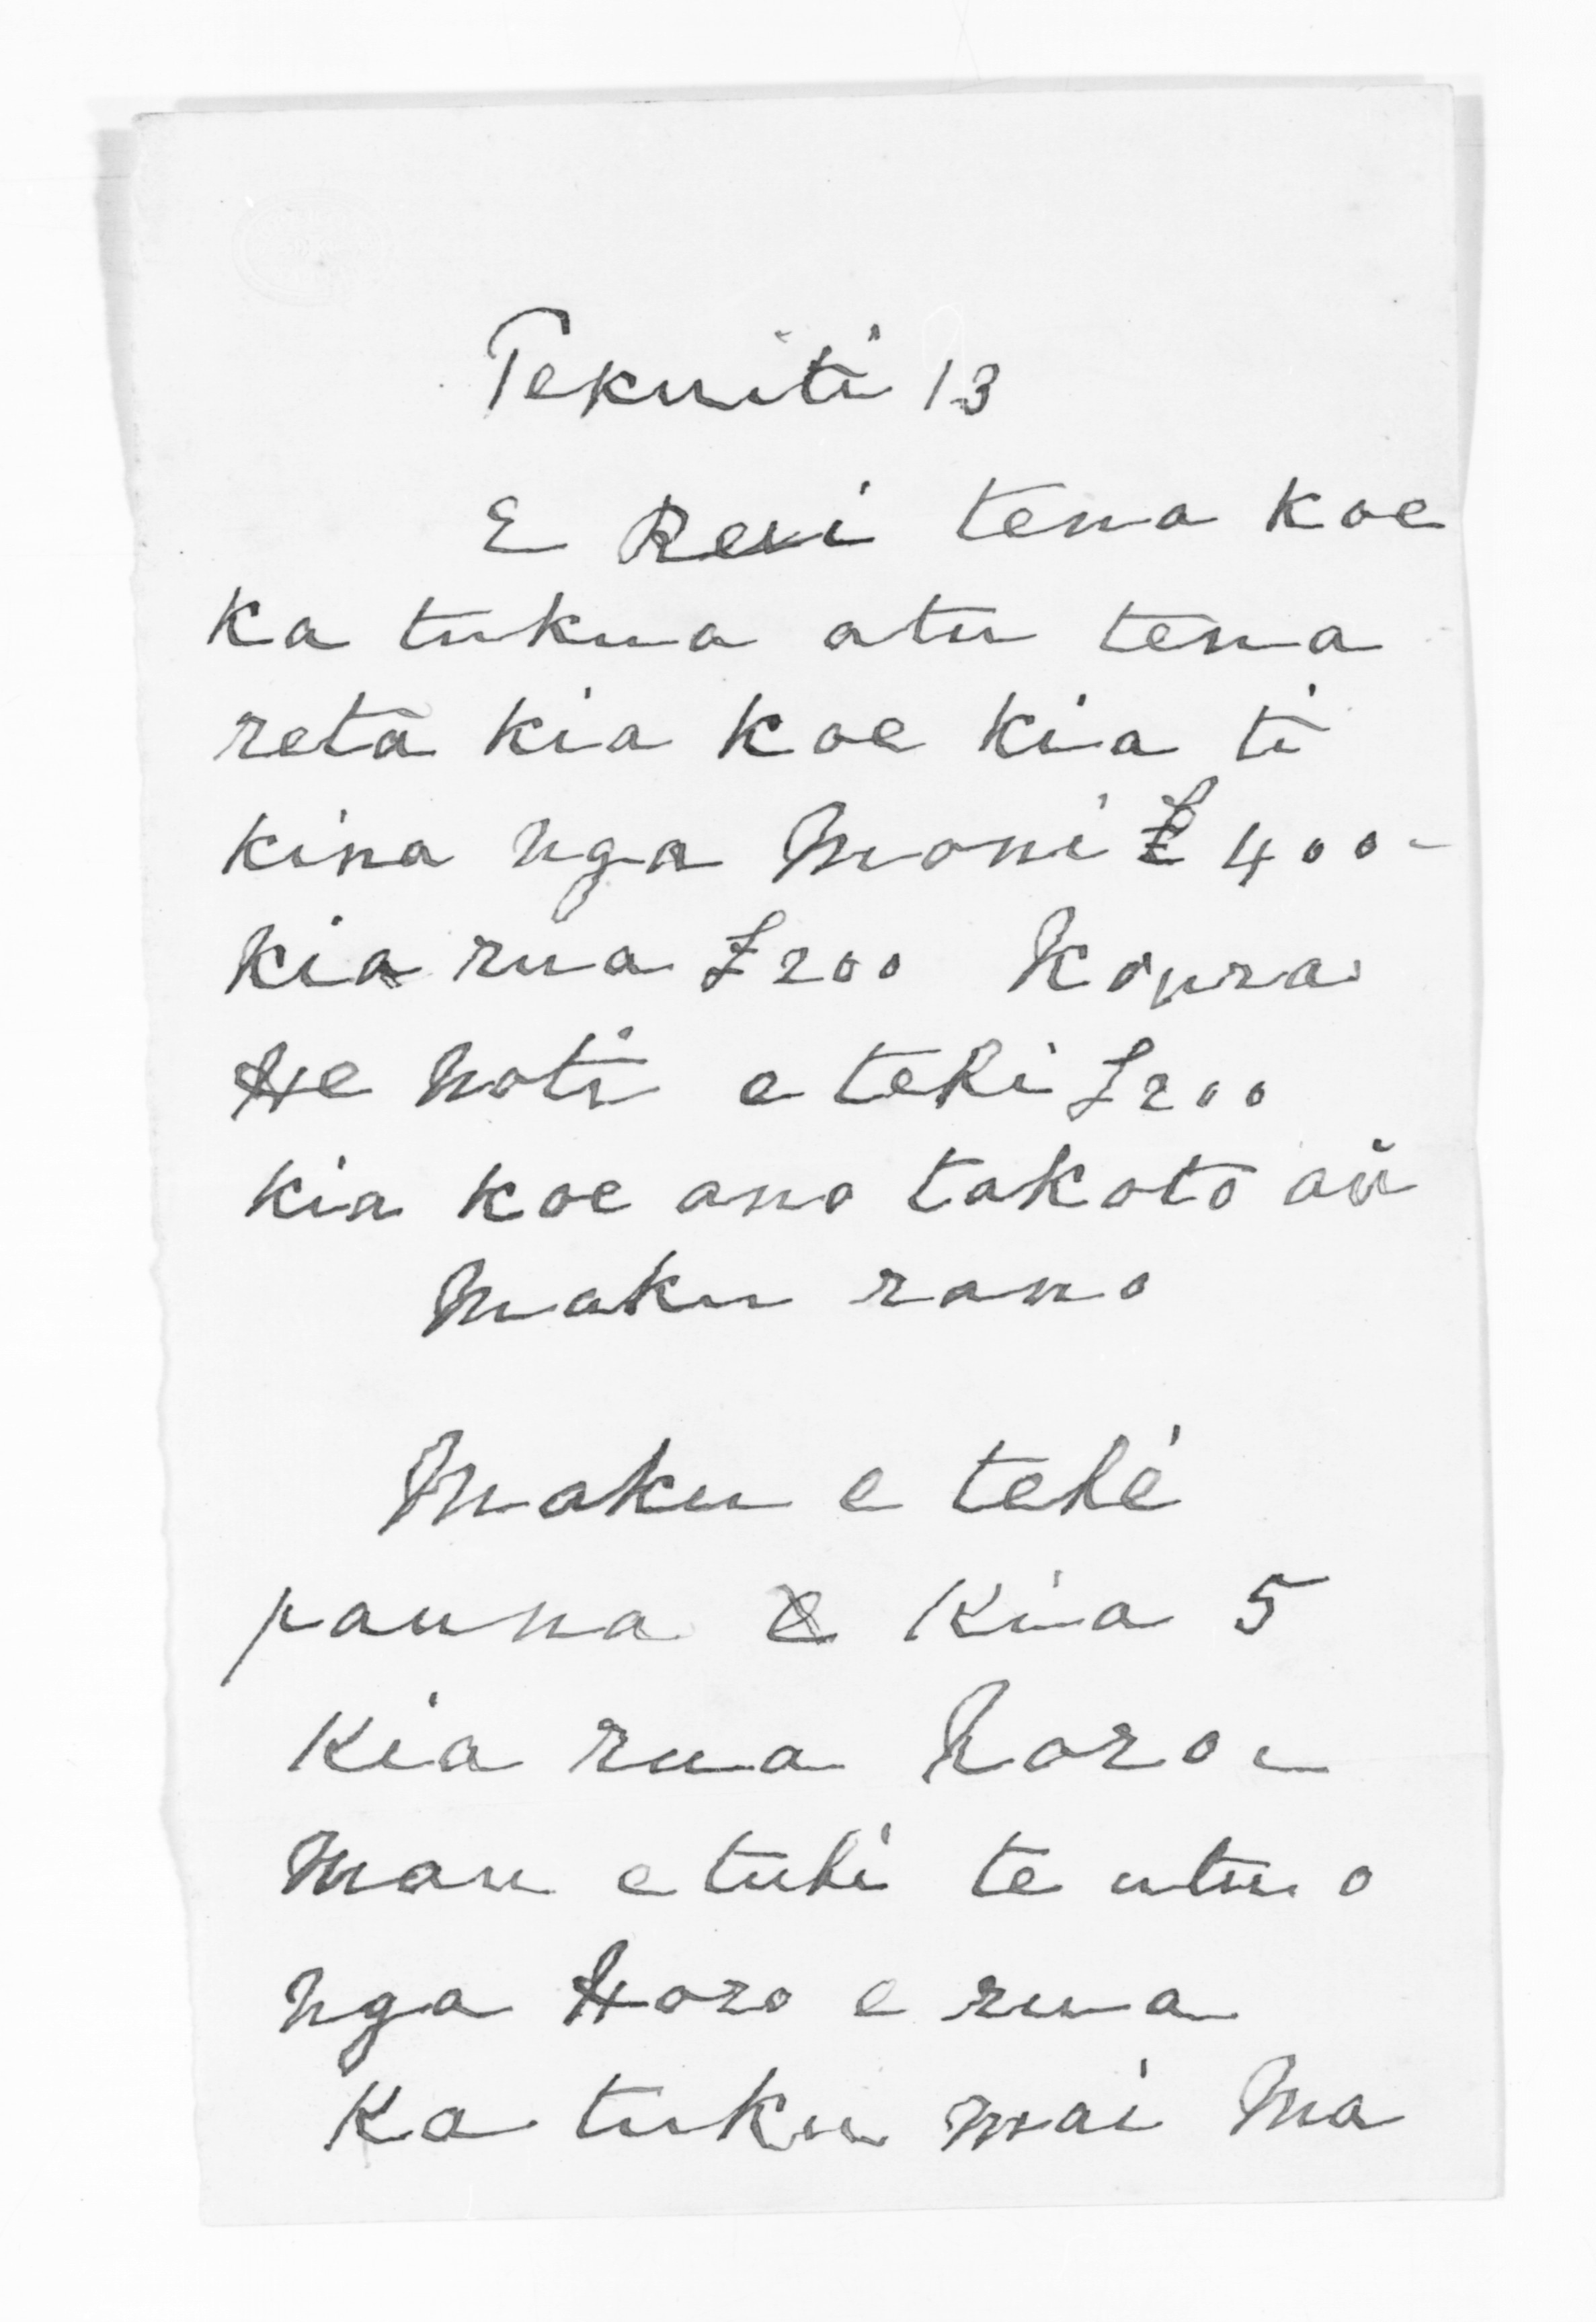 Tekuiti 13
E Rewi tena koe
Ka tukua atu tena
reta kia koe kia ti
kina nga Moni £400-
kia rua £200 Koura
He Noti e tehi £200
kia koe ano takoto ai
Maku rano
Maku e tehi
pauna e Kia 5
Kia rua horo e
Mau e tuhi te utu o
nga Horo e rua
Ka tuku mai Ma